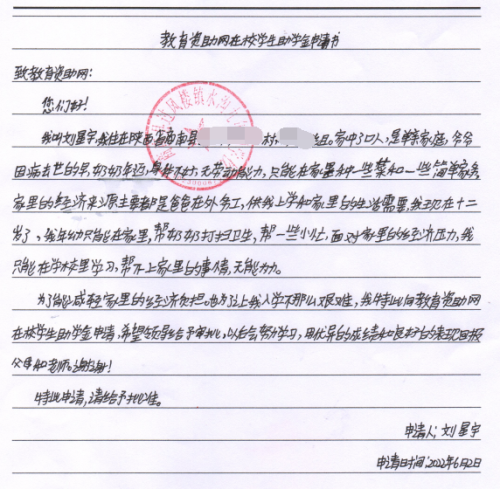 教育资助网在校学生助学金申请书
致教育资助网：
您们好！
我叫刘星宇，我住在陕西省商南县 村， 组。家中了口人，是单亲家庭，爷爷
因病去世的早，奶奶年迈，身体不好，无劳动能力，只能在家里种一些菜和一些简单家务，
家里的经济来原主要都是爸爸在外务工，供我上学和家里的生活需要，我现在十二
岁了、我年幼只能在家里，帮奶奶打扫卫生，帮一些小忙，面对家里的经济压力，我
只能在学校里学习，帮不上家里的事情，无能为力。
为了能减轻家里的经济负担。也为了让我入学不那么艰难，我特此向教育资助网
在校学生助学金申请，希望领导给予审批，以后会努力学习，用优异的成绩和良好的表现回报
父母和老师。谢谢！
特此申请，请给予批准。
申请人：刘星宇
申请日时间：2022年6月2日